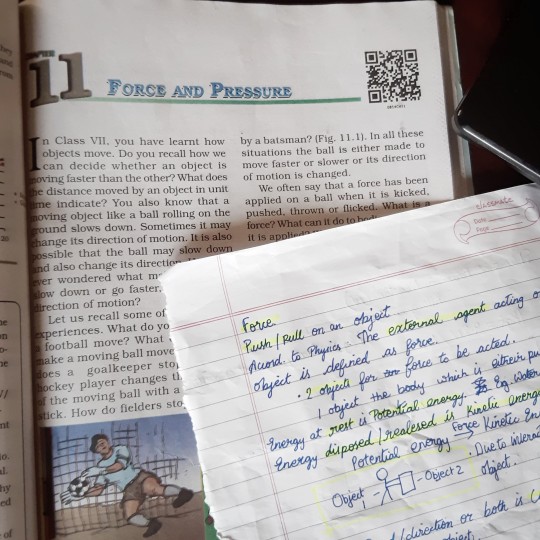 11
FORCE AND PRESSURE
In Class VII, you have learnt how
objects move. Do you recall how we
can decide whether an object is
moving faster than the other? What does
the distance moved by an object in unit
time indicate? You also know that a
moving object like a ball rolling on the
ground slows down. Sometimes it may
change its direction of motion. It is also
possible that the ball may slow down
and also change its direction
ever wondered what
slow down or go faster,
direction of motion?
Let us recall some of
experiences. What do you
a football move? What
make a moving ball move
does a goalkeeper stop
hockey player changes the
of the moving ball with a
stick. How do fielders stop
by a batsman? (Fig. 11.1). In all these
situations the ball is either made to
move faster or slower or its direction
of motion is changed.
We often say that a force has been
applied on a ball when it is kicked,
pushed, thrown or flicked. What is a
force? What can it do to
it is applied?
classmate
Date
Page
Force
Push/pull on an object
Acord. to Physics. The external agent acting
object is defined as force.
2 objects for force to be acted.
1 object the body which is either
Energy at rest is Potential energy. Eg. Water
Energy disposed/realesed is Kinetic energy
Potential energy Force → Kinetic
Object 1 - Object 2 . Due to
object.
/direction or both is